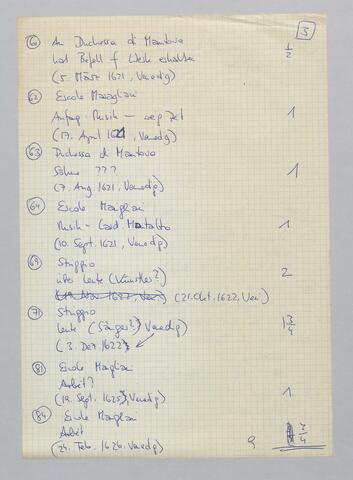 3
(60) An Duchessa di Mantova
hat Befehl f. Werk erhalten 1/2
(5. März 1621, Venedig)
(62) Ercole Marigliani
Anfrag. Musik — 1
(17. April 1621, Venedig)
(63) Duchessa di Mantova
Söhne ??? 1
(7. Aug. 1621, Venedig)
(64) Ercole Marigliani
Musik – Card. Montalto 1
(10. Sept. 1621, Venedig)
(69) Striggio
über Leute (Künstler?) 2
(19. Nov. 1622, Ven.) (21. Okt. 1622, Ven.)
(71) Striggio
Leute (Sänger?) Venedig 1 3/4
(3. Dez 1622)
(81) Ercole Marigliani
Arbeit? 1
(19. Sept. 1625, Venedig)
(84) Ercole Marigliani
Arbeit 3/4
(24. Feb. 1626. Venedig) 9